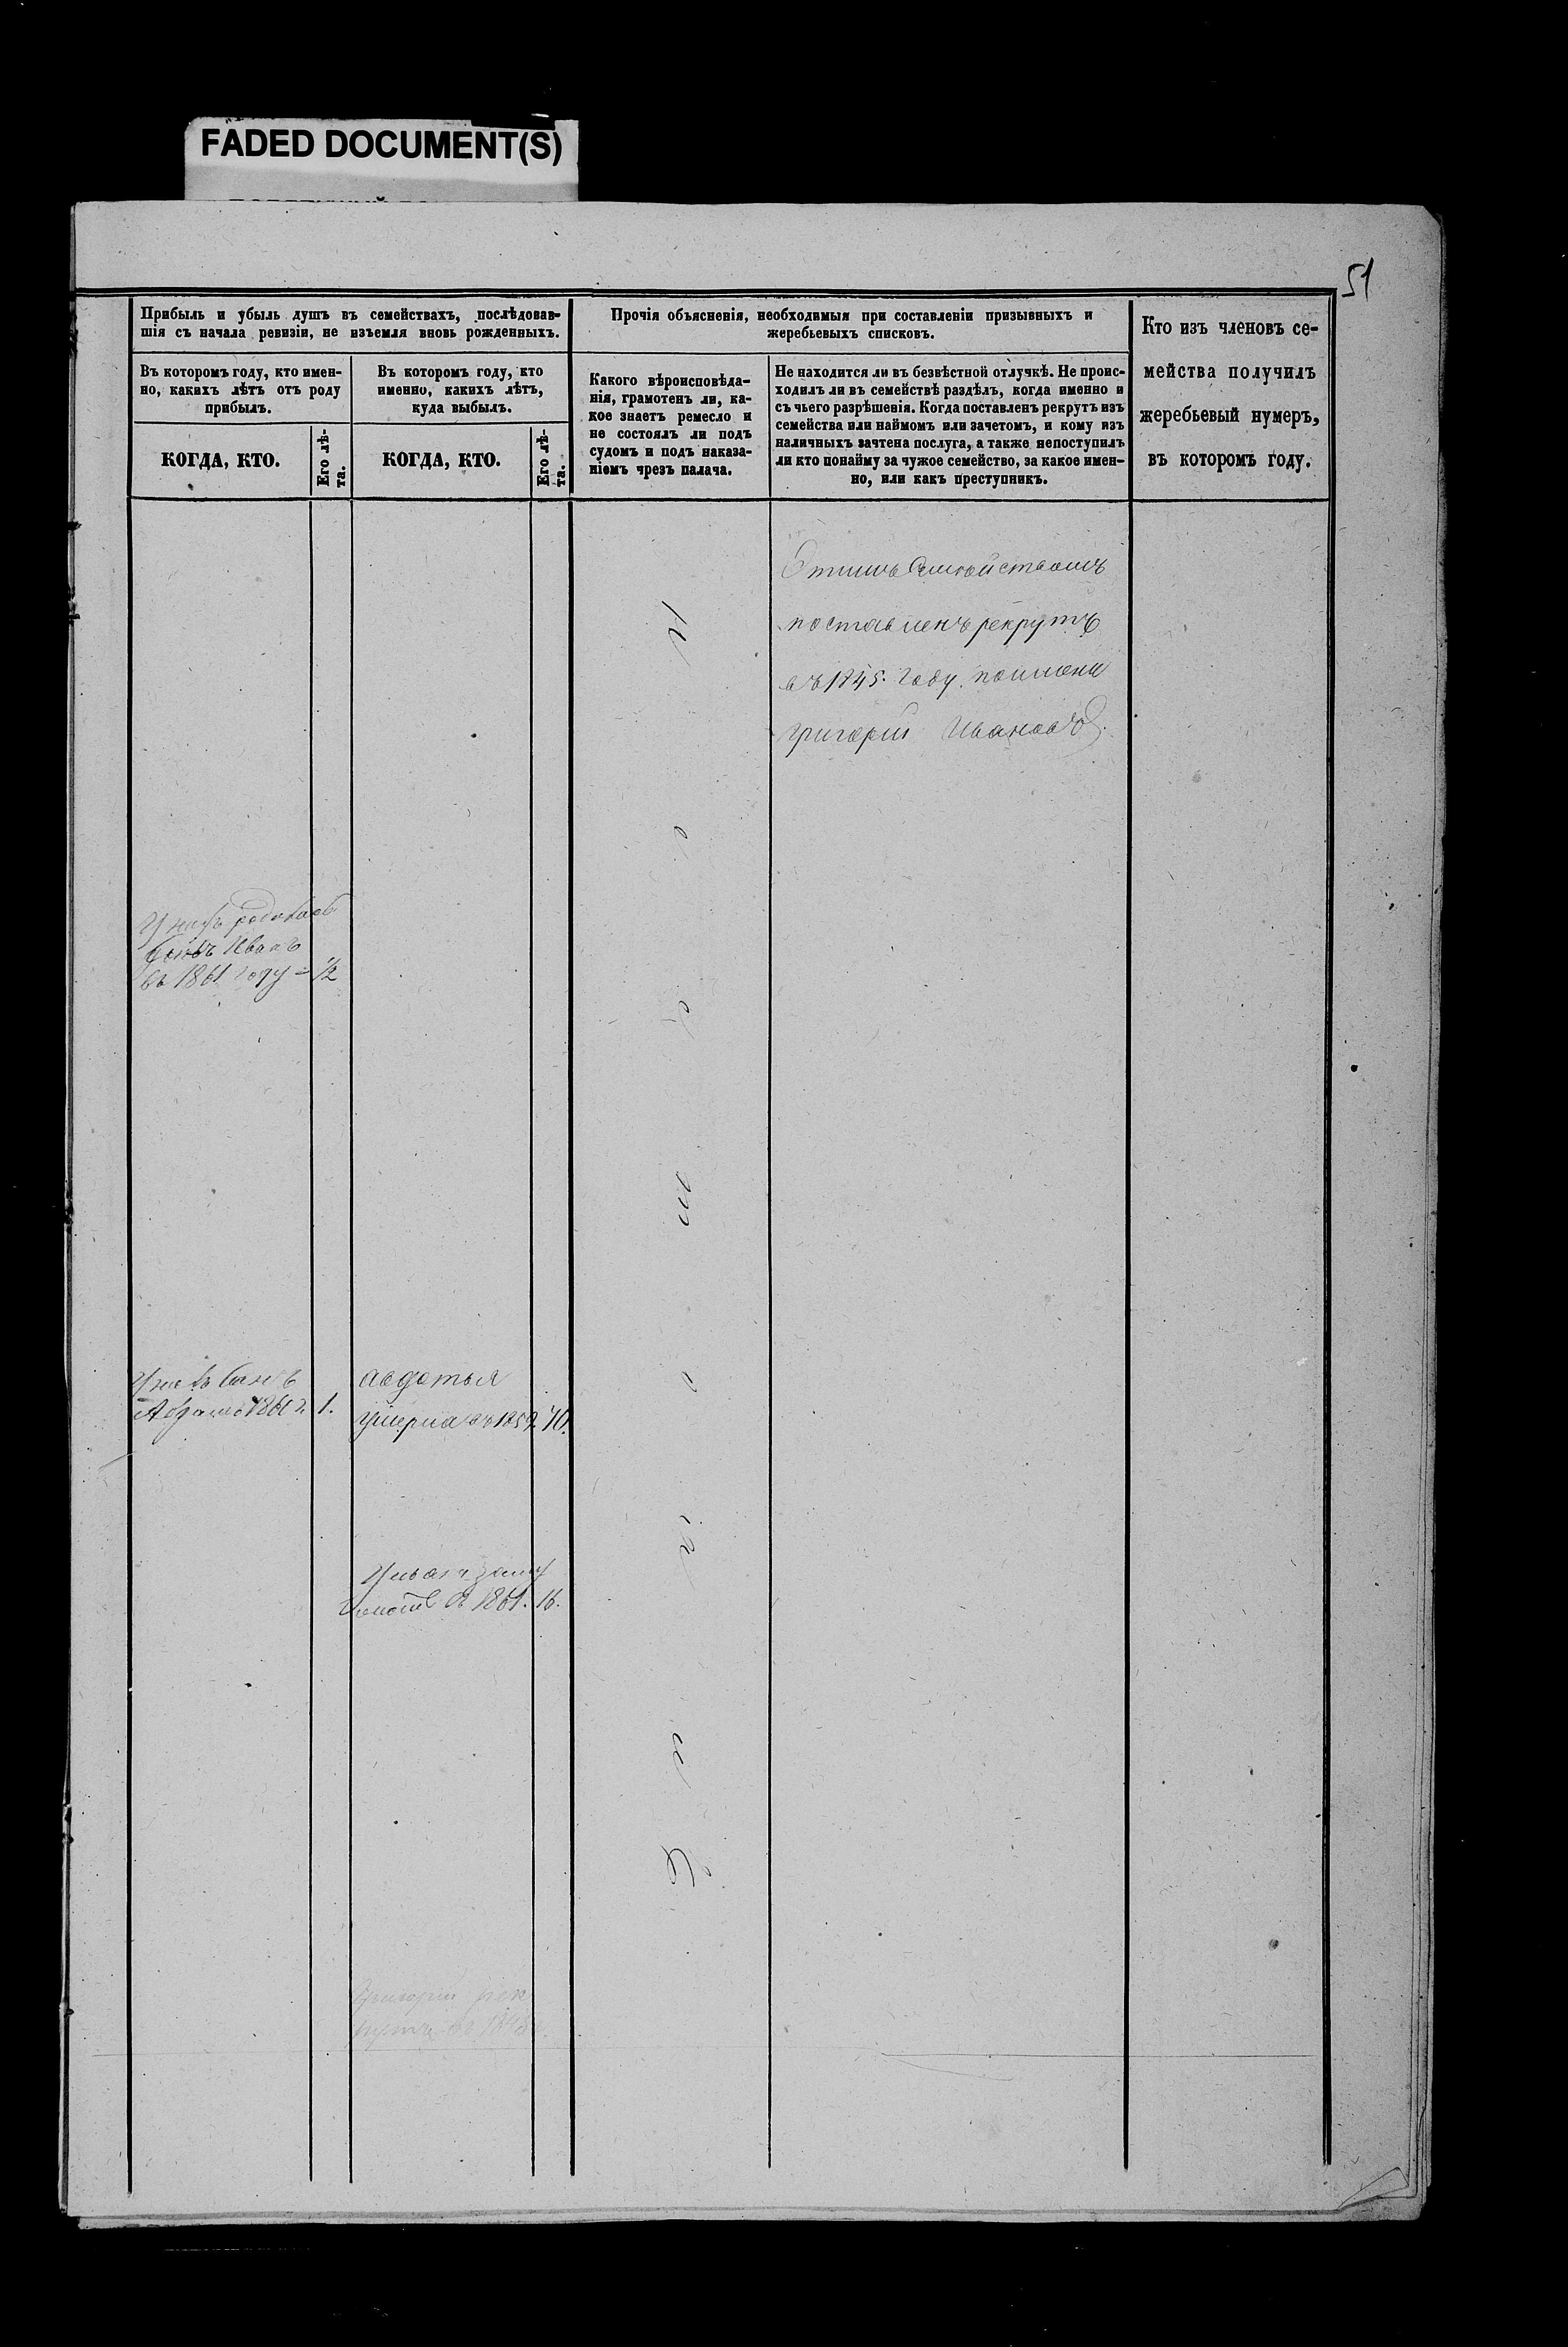 FADED DOCUMENT(S)
51
Прибыль и убыль душъ въ семействахъ, послѣдовав-
шія съ начала ревизіи, не изъемля вновь рожденныхъ.
Въ которомъ году, кто имен-
но, какихъ лѣтъ отъ роду
прибылъ.
КОГДА, КТО.
Его лѣ-
та.
Въ которомъ году, кто
именно, какихъ лѣтъ,
куда выбылъ.
КОГДА, КТО.
Его лѣ-
та.
Прочія объясненія, необходимыя при составленіи призывныхъ и
жеребьевыхъ списковъ.
Какого вѣроисповѣда-
нія, грамотенъ ли, ка-
кое знаетъ ремесло и
не состоялъ ли подъ
судомъ и подъ наказа-
ніемъ чрезъ палача.
Не находится ли въ безвѣстной отлучкѣ. Не проис-
ходилъ ли въ семействѣ раздѣлъ, когда именно и
съ чьего разрѣшенія. Когда поставленъ рекрутъ изъ
семейства или наймомъ или зачетомъ, и кому изъ
наличныхъ зачтена послуга, а также непоступилъ
ли кто понайму за чужое семейство, за какое имен-
но, или какъ преступникъ.
Кто изъ членовъ се-
мейства получилъ
жеребьевый нумеръ,
въ которомъ году.
Этимъ Семействомъ
поставленъ рекрутъ
въ 1845. году. поимени
григорій Ивановъ.
У нихъ родился
Сынъ Иванъ
въ 1861 году = 1/2
У нихъ Сынъ
1861 1.
авдотья
умерла въ 1859 70.
замуж
въ 1861. 16.
Григорій рек
рутъ въ 1845